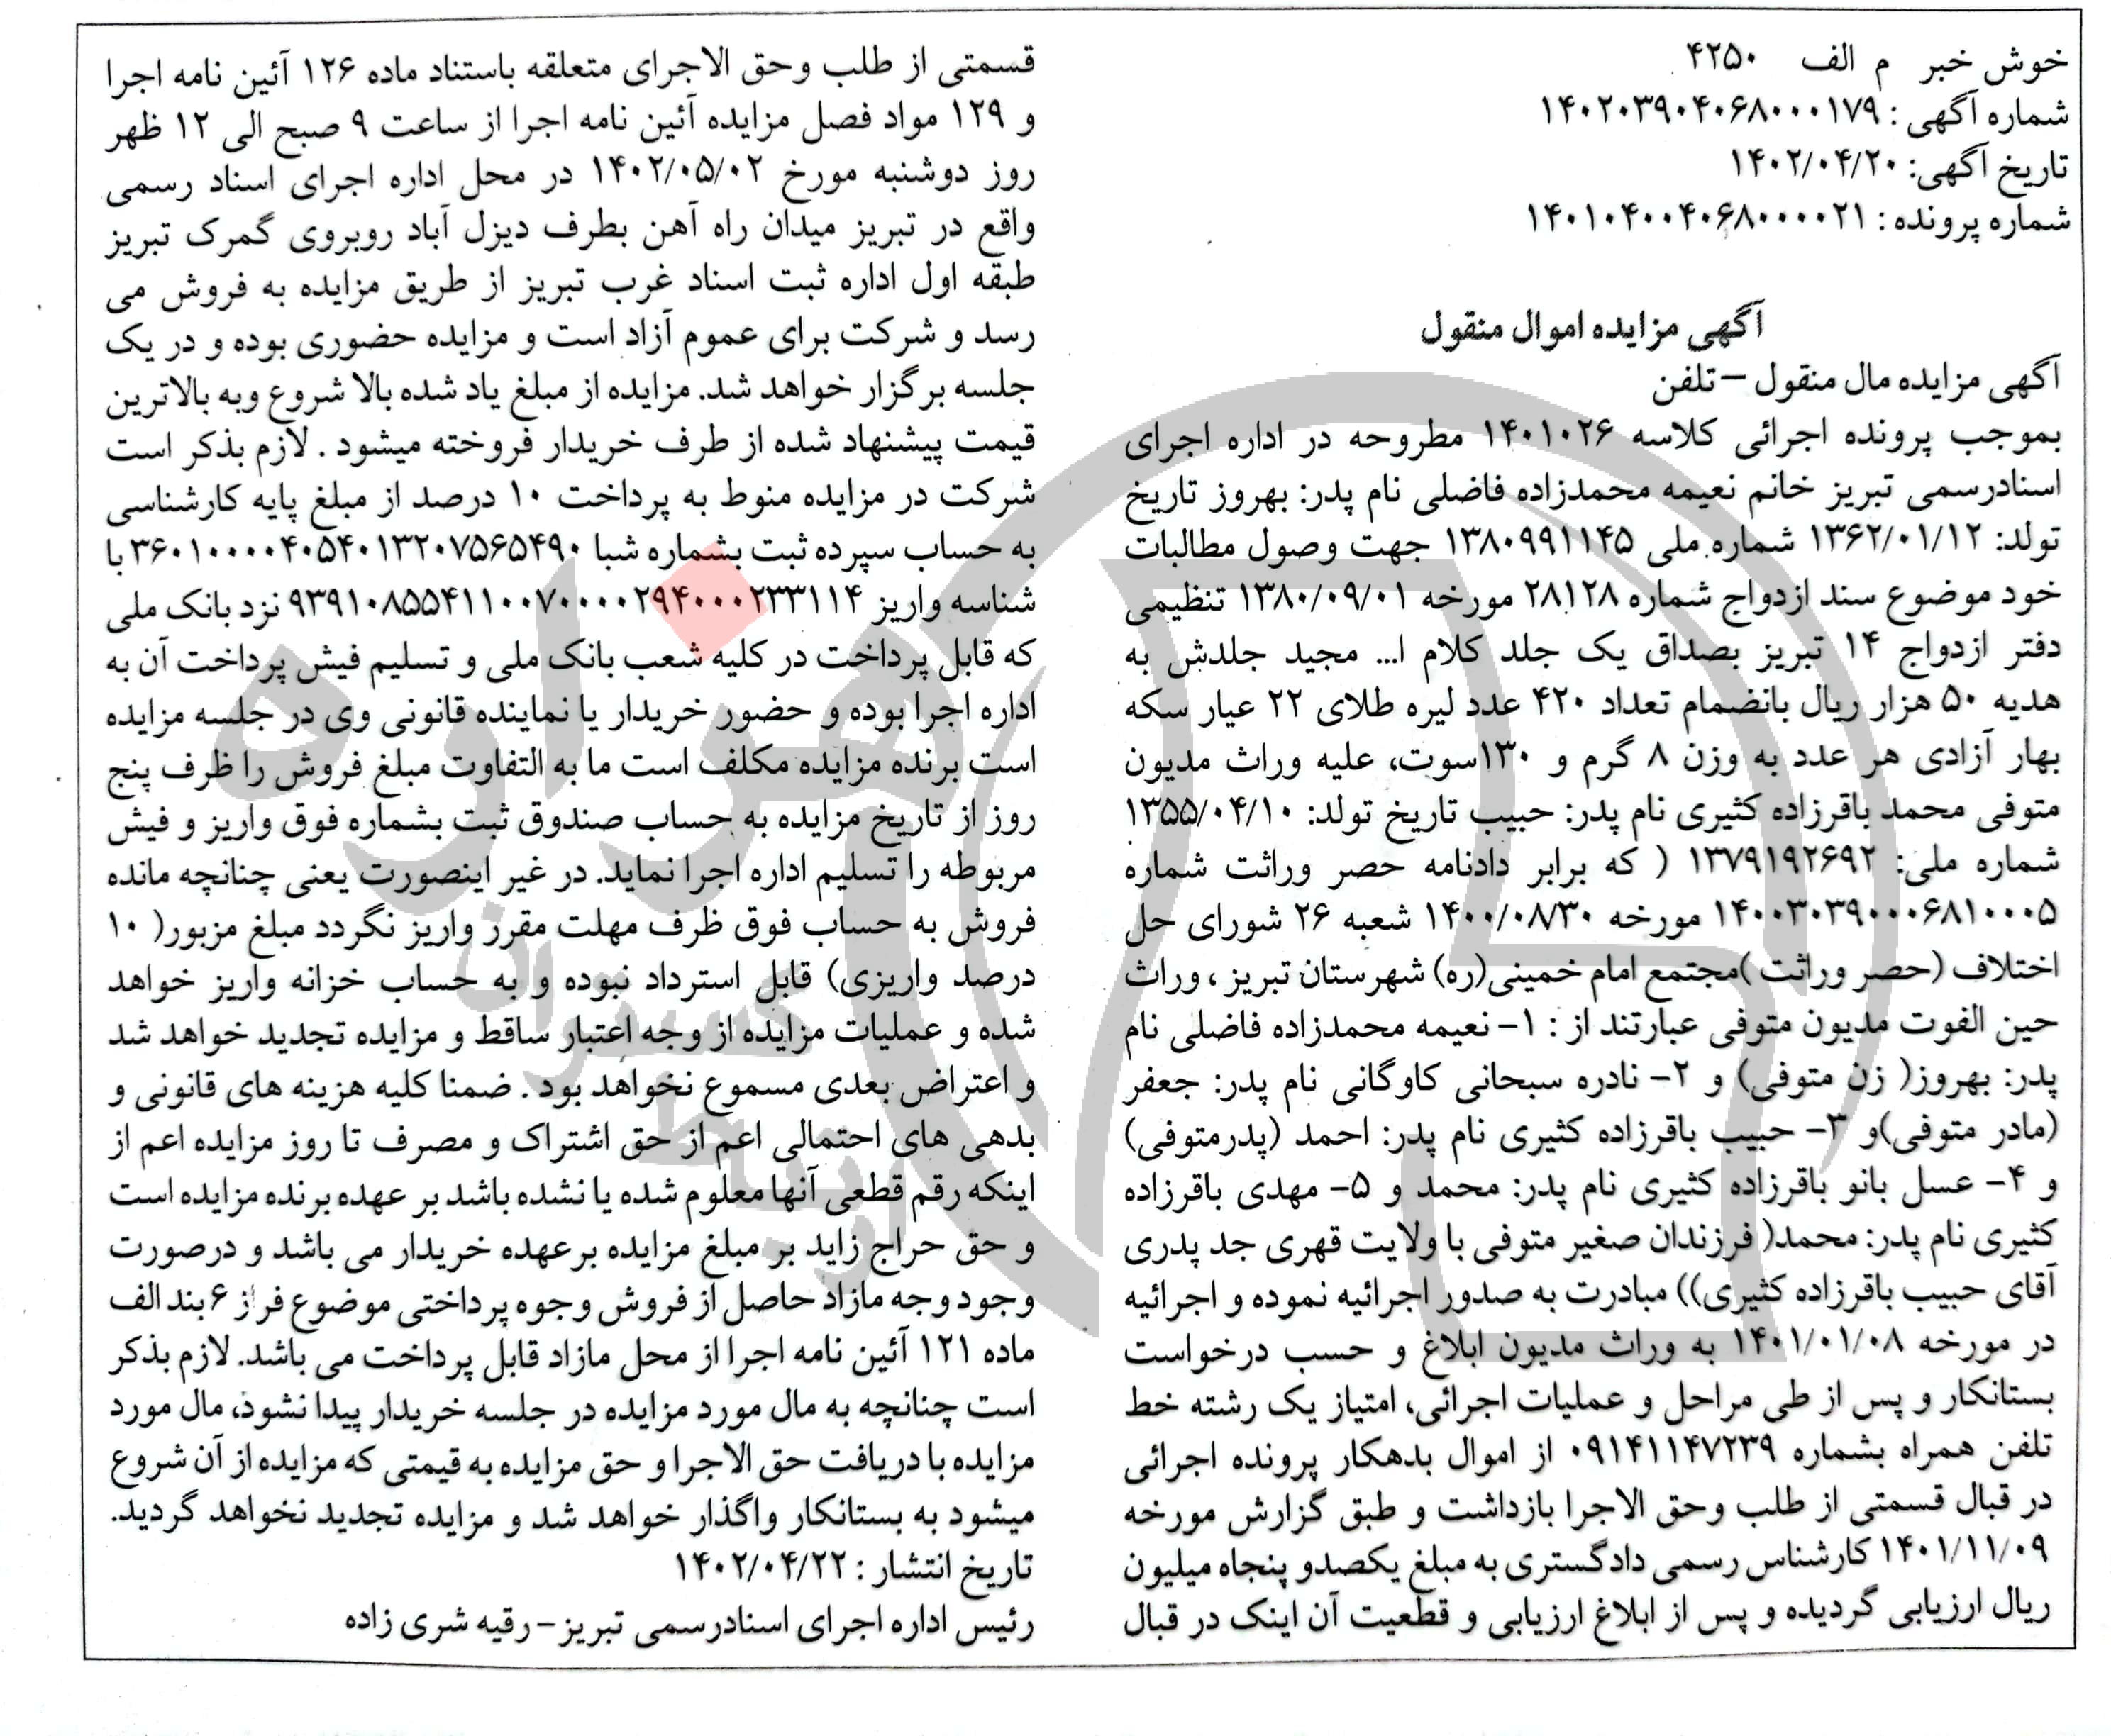 خوش خبر م الف ۴۲۵۰
شماره آگهی : ۱۴۰۲۰۳۹۰۴۰۶۸۰۰۰۱۷۹
تاریخ آگهی: ۱۴۰۲/۰۴/۲۰
شماره پرونده : ۱۴۰۱۰۴۰۰۴۰۶۸۰۰۰۰۲۱
آگهی مزایده اموال منقول
آگهی مزایده مال منقول – تلفن
بموجب پرونده اجرائی کلاسه ۱۴۰۱۰۲۶ مطروحه در اداره اجرای
اسنادرسمی تبریز خانم نعیمه محمدزاده فاضلی نام پدر: بهروز تاریخ
تولد: ۱۳۶۲/۰۱/۱۲ شماره ملی ۱۳۸۰۹۹۱۱۴۵ جهت وصول مطالبات
خود موضوع سند ازدواج شماره ۲۸۱۲۸ مورخه ۱۳۸۰/۰۹/۰۱ تنظیمی
دفتر ازدواج ۱۴ تبریز بصداق یک جلد کلام ا... مجید جلدش به
هدیه ۵۰ هزار ریال بانضمام تعداد ۴۲۰ عدد لیره طلای ۲۲ عیار سکه
بهار آزادی هر عدد به وزن ۸ گرم و ۱۳۰سوت، علیه وراث مدیون
متوفی محمد باقرزاده کثیری نام پدر: حبیب تاریخ تولد: ۱۳۵۵/۰۴/۱۰
شماره ملی: ۱۳۷۹۱۹۲۶۹۲ ( که برابر دادنامه حصر وراثت شماره
۱۴۰۰۳۰۳۹۰۰۰۶۸۱۰۰۰۵ مورخه ۱۴۰۰/۰۸/۳۰ شعبه ۲۶ شورای حل
اختلاف (حصر وراثت )مجتمع امام خمینی(ره) شهرستان تبریز ، وراث
حین الفوت مدیون متوفی عبارتند از : ۱- نعیمه محمدزاده فاضلی نام
پدر: بهروز( زن متوفی) و ۲- نادره سبحانی کاوگانی نام پدر: جعفر
(مادر متوفی)و ۳- حبیب باقرزاده کثیری نام پدر: احمد (پدرمتوفی)
و ۴- عسل بانو باقرزاده کثیری نام پدر: محمد و ۵- مهدی باقرزاده
کثیری نام پدر: محمد( فرزندان صغیر متوفی با ولایت قهری جد پدری
آقای حبیب باقرزاده کثیری)) مبادرت به صدور اجرائیه نموده و اجرائیه
در مورخه ۱۴۰۱/۰۱/۰۸ به وراث مدیون ابلاغ و حسب درخواست
بستانکار و پس از طی مراحل و عملیات اجرائی، امتیاز یک رشته خط
تلفن همراه بشماره ۰۹۱۴۱۱۴۷۲۳۹ از اموال بدهکار پرونده اجرائی
در قبال قسمتی از طلب وحق الاجرا بازداشت و طبق گزارش مورخه
۱۴۰۱/۱۱/۰۹ کارشناس رسمی دادگستری به مبلغ یکصدو پنجاه میلیون
ریال ارزیابی گردیده و پس از ابلاغ ارزیابی و قطعیت آن اینک در قبال
قسمتی از طلب وحق الاجرای متعلقه باستناد ماده ۱۲۶ آئین نامه اجرا
و ۱۲۹ مواد فصل مزایده آئین نامه اجرا از ساعت ۹ صبح الی ۱۲ ظهر
روز دوشنبه مورخ ۱۴۰۲/۰۵/۰۲ در محل اداره اجرای اسناد رسمی
واقع در تبریز میدان راه آهن بطرف دیزل آباد روبروی گمرک تبریز
طبقه اول اداره ثبت اسناد غرب تبریز از طریق مزایده به فروش می
رسد و شرکت برای عموم آزاد است و مزایده حضوری بوده و در یک
جلسه برگزار خواهد شد. مزایده از مبلغ یاد شده بالا شروع وبه بالاترین
قیمت پیشنهاد شده از طرف خریدار فروخته میشود . لازم بذکر است
شرکت در مزایده منوط به پرداخت ۱۰ درصد از مبلغ پایه کارشناسی
به حساب سپرده ثبت بشماره شبا ۳۶۰۱۰۰۰۰۴۰۵۴۰۱۳۲۰۷۵۶۵۴۹۰ با
شناسه واریز ۹۳۹۱۰۸۵۵۴۱۱۰۰۷۰۰۰۰۲۹۴۰۰۰۲۳۳۱۱۴ نزد بانک ملی
که قابل پرداخت در کلیه شعب بانک ملی و تسلیم فیش پرداخت آن به
اداره اجرا بوده و حضور خریدار یا نماینده قانونی وی در جلسه مزایده
است برنده مزایده مکلف است ما به التفاوت مبلغ فروش را ظرف پنج
روز از تاریخ مزایده به حساب صندوق ثبت بشماره فوق واریز و فیش
مربوطه را تسلیم اداره اجرا نماید. در غیر اینصورت یعنی چنانچه مانده
فروش به حساب فوق ظرف مهلت مقرر واریز نگردد مبلغ مزبور( ۱۰
درصد واریزی) قابل استرداد نبوده و به حساب خزانه واریز خواهد
شده و عملیات مزایده از وجه اعتبار ساقط و مزایده تجدید خواهد شد
و اعتراض بعدی مسموع نخواهد بود . ضمنا کلیه هزینه های قانونی و
بدهی های احتمالی اعم از حق اشتراک و مصرف تا روز مزایده اعم از
اینکه رقم قطعی آنها معلوم شده یا نشده باشد بر عهده برنده مزایده است
و حق حراج زاید بر مبلغ مزایده برعهده خریدار می باشد و درصورت
وجود وجه مازاد حاصل از فروش وجوه پرداختی موضوع فراز ۶ بند الف
ماده ۱۲۱ آئین نامه اجرا از محل مازاد قابل پرداخت می باشد. لازم بذکر
است چنانچه به مال مورد مزایده در جلسه خریدار پیدا نشود، مال مورد
مزایده با دریافت حق الاجرا و حق مزایده به قیمتی که مزایده از آن شروع
میشود به بستانکار واگذار خواهد شد و مزایده تجدید نخواهد گردید.
تاریخ انتشار : ۱۴۰۲/۰۴/۲۲
رئیس اداره اجرای اسنادرسمی تبریز – رقیه شری زاده